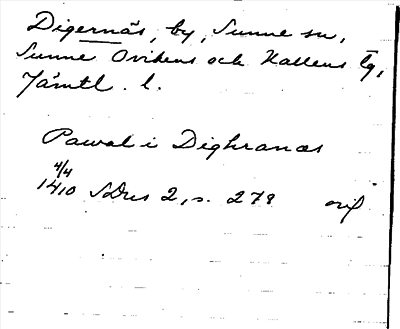 Digernäs, by, Sunne sn,
Sunne Ovikens och Hallens tg,
Jämtl. l.
Pawal i Dighranæs
4/4
1410 SDns 2, s. 278 orig